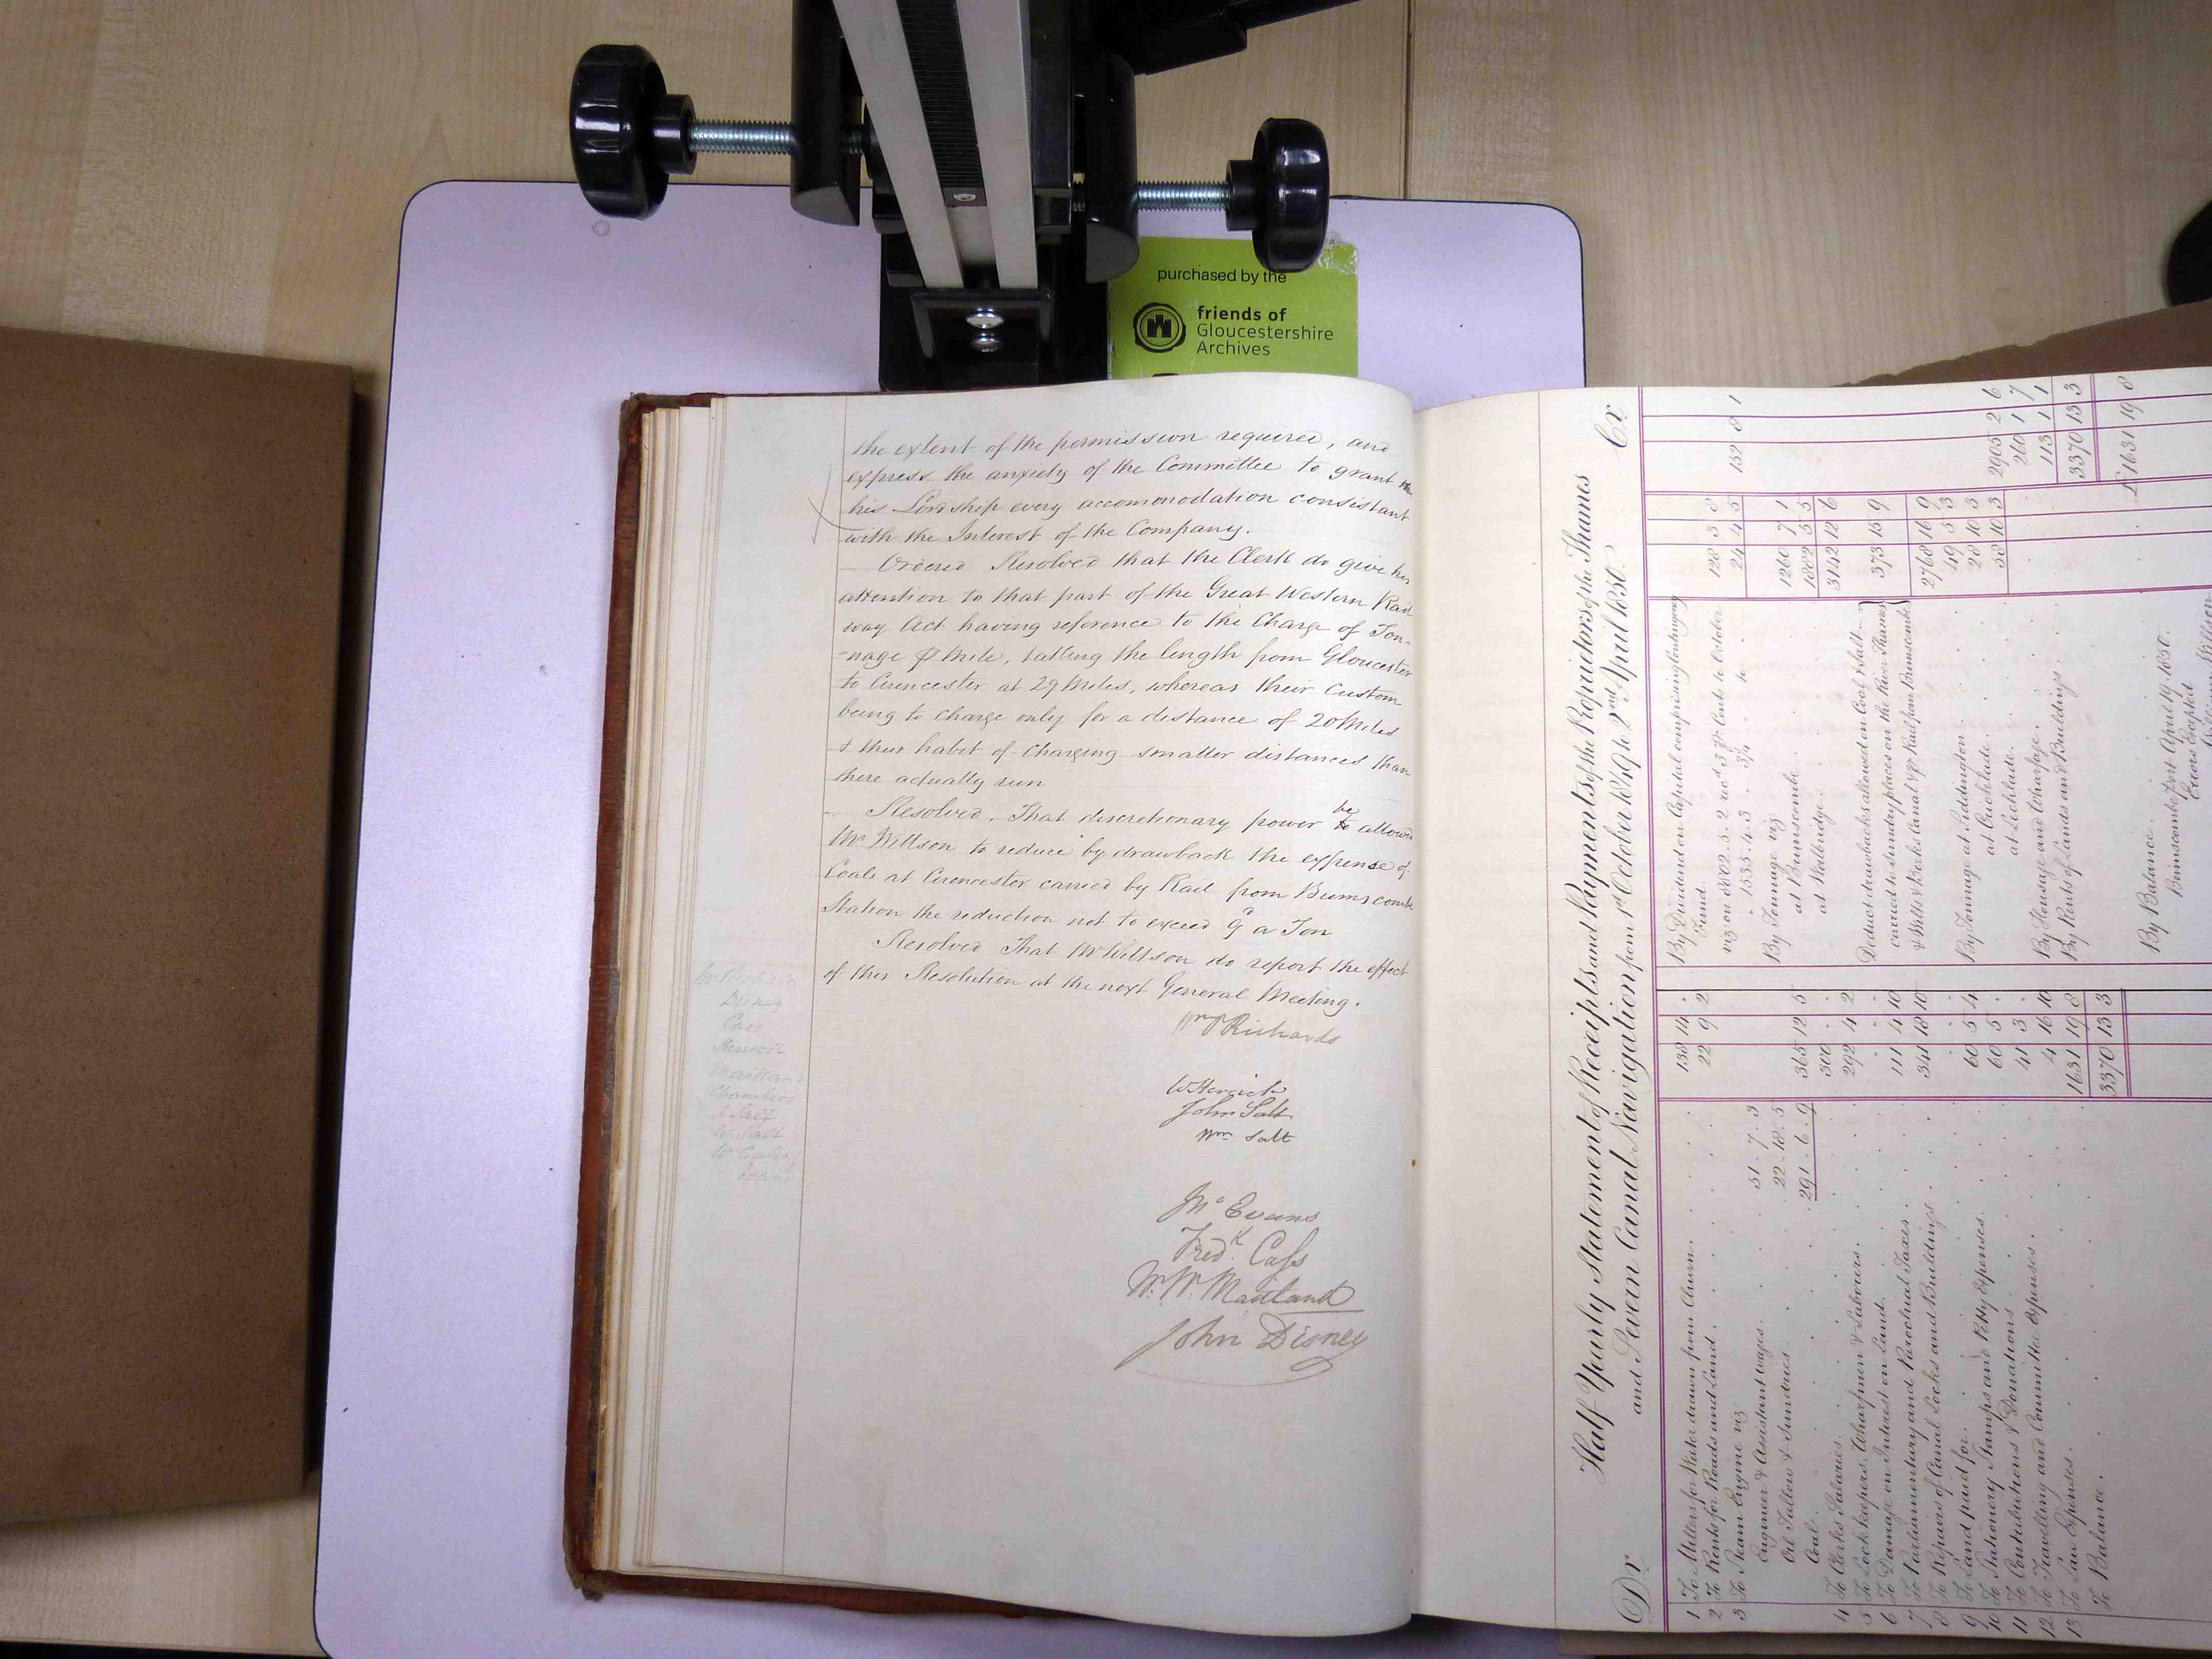 purchased by the
friends of
Gloucestershire
Archives
the extent of the permission required, and
express the anxiety of the Committee to grant
his Lordship every accomodation consistant
with the Interest of the Company.
Ordered Resolved that the Clerk do give his
attention to that part of the Great Western Rail
way Act having reference to the Charge of Ton-
-nage ⅌ Mile, talking the length from Gloucester
to Cirencester at 29 Miles, whereas their Custom
being to charge only for a distance of 20 Miles
& their habit of Charging smaller distances than
there actually run
Resolved. That discretionary power be allowed
Mr Willson to reduce by drawback the expense of
Coals at Cirencester carried by Rail from Brimscombe
Station the reduction not to exceed 9d a Ton
Resolved That Mr Willson do report the effect
of this Resolution at the next General Meeting.
Disney
Cass
Maitland
Chambers
J Salt
W Salt
Evans
Wm P Richards
John Salt
Wm Salt
Mc Evans
Fredk. Cass
W. W. Maitland
John Disney
Dr. Half Yearly Statement of Receipts and Payments of the Proprietors of the Thames Cr.
and Severn Canal Navigation from 1st October 1849 to 2nd April 1850.
1 To Millers for Water drawn from Churn 138 14 .
2 To Rents for Roads and Land 22 9 2
3 To Steam Engine viz
Engineer & Assistant wages 51 . 7 . 3
Oil Tallow & Sundries 22 . 18 . 5
Coal 291 . 6 . 9 365 12 5
4 To Clerks Salaries 300 . .
5 To Lockkeepers, Wharfmen & Labourers 292 4 2
6 To Damage on Interest on Land
7 To Parliamentary and Parochial Taxes 111 4 10
8 To Repairs of Canal Locks and Buildings 341 18 10
9 To Land paid for
10 To Stationery Stamps and Petty Expenses 60 5 4
11 To Contributions & Donations 60 5 .
12 To Travelling and Committee Expenses 41 3 .
13 To Law Expenses 4 16 10
To Balance 1631 19 8
3370 13 3
By Dividend on Capital comprising Contingency
Fund 128 3 8
24 4 5 152 8 1
By Tonnage viz
at Brimscombe 1260 7 1
at Wallbridge 1882 5 5
3142 12 6
Deduct drawbacks allowed on Coal & Salt
carried to sundry places on the River Thames
& Wilts & Berks Canal & pr Rail from Brimscombe 373 15 9
2768 16 9
By Tonnage at Siddington 49 5 3
at Cricklade 28 10 3
at Lechlade 58 10 3 2905 2 6
By Housage and Wharfage 260 1 7
By Rents of Lands and Buildings 113 1 1
3370 13 3
By Balance £1631 19 8
Brimscombe Port April 19. 1850.
Errors Excepted